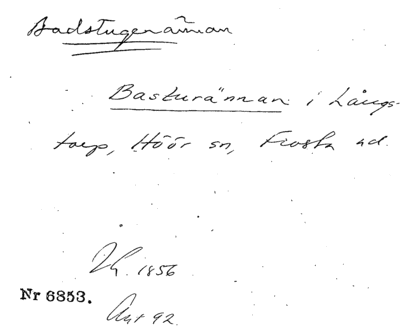 Badstugerännan
Basturännan i Långs-
torp, Höör sn, Frosta hd.
1856
Nr 6853.
92.